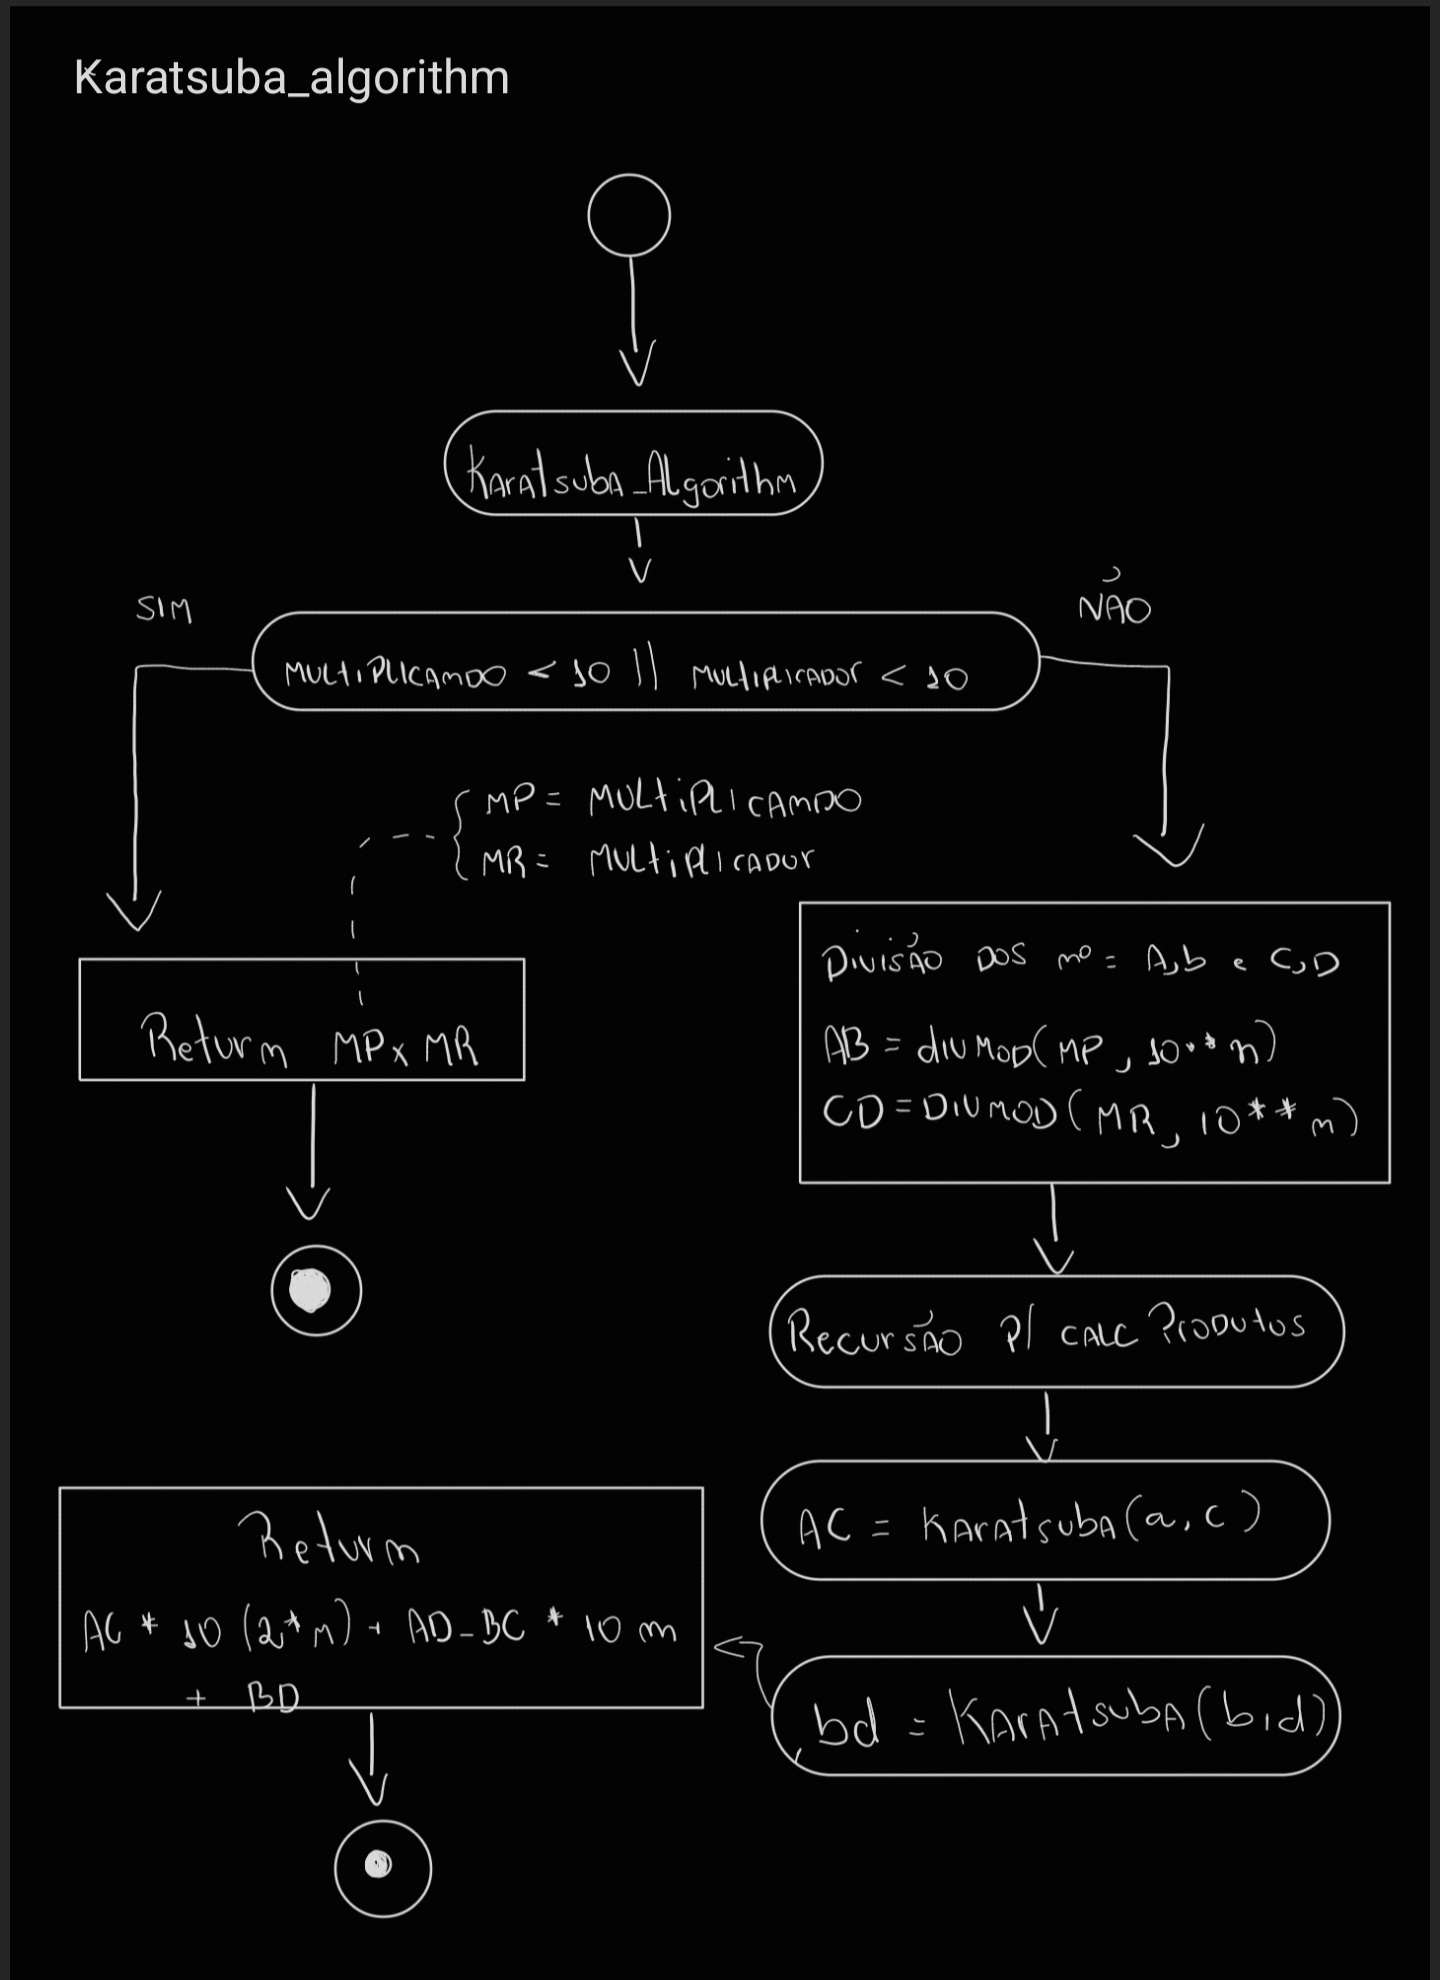 Karatsuba_algorithm
Karatsuba_Algorithm
SIM
NÃO
MULTIPLICANDO < 10 || MULTIPLICADOR < 10
MP = MULTIPLICANDO
MR = MULTIPLICADOR
Return MP x MR
DIVISÃO DOS nº = A,b e C,D
AB = divmod(MP, 10**n)
CD = DIVMOD(MR, 10**n)
Recursão p/ calc Produtos
AC = Karatsuba(a,c)
bd = Karatsuba(b,d)
Return
AC * 10 (2*n) + AD_BC * 10 n
+ BD